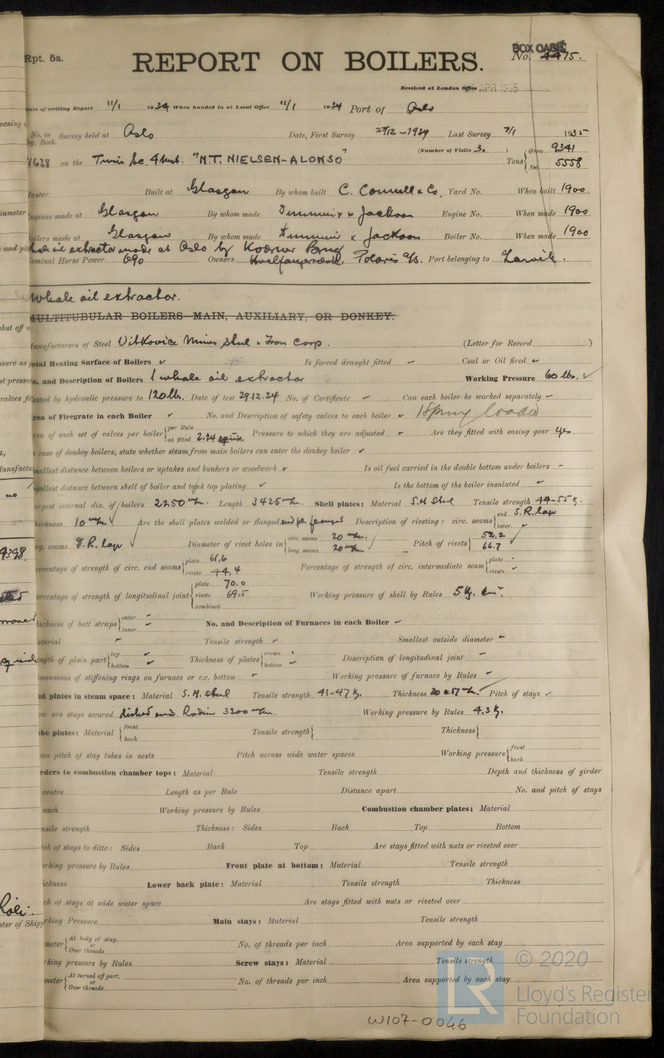 Rpt. 5a.
REPORT ON BOILERS.
BOX CASE
No. 4475.
Received at London Office APR 1935
Date of writing Report 11/1 1934 When handed in at Local Office 11/1 1934 Port of Oslo
No. in Survey held at Oslo Date, First Survey 27/12-1934 Last Survey 7/1 1935
Reg. Book. (Number of Visits 3. ) Gross 9341
1638 on the Twin Sc. 4 mst. "N.T. NIELSEN-ALONSO" Tons Net 5558
Master Built at Glasgow By whom built C. Connell & Co. Yard No. When built 1900
Engines made at Glasgow By whom made Dunsmuir & Jackson Engine No. When made 1900
Boilers made at Glasgow By whom made Dunsmuir & Jackson Boiler No. When made 1900
Whale oil extractor made at Oslo by
Nominal Horse Power 690 Owners Hvalfangerselsk. Polaris A/S. Port belonging to Larvik.
Whale oil extractor.
MULTITUBULAR BOILERS MAIN, AUXILIARY, OR DONKEY.
Manufacturers of Steel Vitkovice Mines Steel & Iron Corp. (Letter for Record )
Total Heating Surface of Boilers Is forced draught fitted Coal or Oil fired
No. and Description of Boilers 1 whale oil extractor Working Pressure 60 lbs.
Tested by hydraulic pressure to 120 lbs. Date of test 29.12.34 No. of Certificate - Can each boiler be worked separately -
Area of Firegrate in each Boiler No. and Description of safety valves to each boiler 1 Spring loaded
Area of each set of valves per boiler per Rule as fitted 2.24 Pressure to which they are adjusted Are they fitted with easing gear Yes.
In case of donkey boilers, state whether steam from main boilers can enter the donkey boiler
Smallest distance between boilers or uptakes and bunkers or woodwork Is oil fuel carried in the double bottom under boilers -
Smallest distance between shell of boiler and tank top plating Is the bottom of the boiler insulated
Largest internal dia. of boilers 2250 m/m. Length 3425 m/m. Shell plates: Material S.M. Steel Tensile strength 44-55 kg.
Thickness 10 m/m Are the shell plates welded or flanged end pl. flanged Description of riveting: circ. seams end S.R. lap inter.
long. seams D.R. lap Diameter of rivet holes in circ. seams 20 m/m. long. seams 20 m/m. Pitch of rivets 52.2 66.7
Percentage of strength of circ. end seams plate 61,6 rivets 44,4 Percentage of strength of circ. intermediate seam plate - rivets -
Percentage of strength of longitudinal joint plate 70.0 rivets 69.5 combined Working pressure of shell by Rules
Thickness of butt straps outer inner No. and Description of Furnaces in each Boiler
Material Tensile strength Smallest outside diameter
Length of plain part top bottom Thickness of plates crown bottom Description of longitudinal joint
Dimensions of stiffening rings on furnace or c.c. bottom Working pressure of furnace by Rules
End plates in steam space: Material S.M. Steel Tensile strength 41-47 kg. Thickness Pitch of stays
How are stays secured dished ends. Radius 3300 m/m. Working pressure by Rules 4.3 kg.
Tube plates: Material front back Tensile strength Thickness
Mean pitch of stay tubes in nests Pitch across wide water spaces Working pressure front back
Girders to combustion chamber tops: Material Tensile strength Depth and thickness of girder
at centre Length as per Rule Distance apart No. and pitch of stays
in each Working pressure by Rules Combustion chamber plates: Material
Tensile strength Thickness: Sides Back Top Bottom
Pitch of stays to ditto: Sides Back Top Are stays fitted with nuts or riveted over
Working pressure by Rules Front plate at bottom: Material Tensile strength
Thickness Lower back plate: Material Tensile strength Thickness
Pitch of stays at wide water space Are stays fitted with nuts or riveted over
Working Pressure Main stays: Material Tensile strength
Diameter At body of stay, or Over threads No. of threads per inch Area supported by each stay
Working pressure by Rules Screw stays: Material Tensile strength
Diameter At turned off part, or Over threads No. of threads per inch Area supported by each stay
© 2020
LR Lloyd's Register Foundation
W107-0046